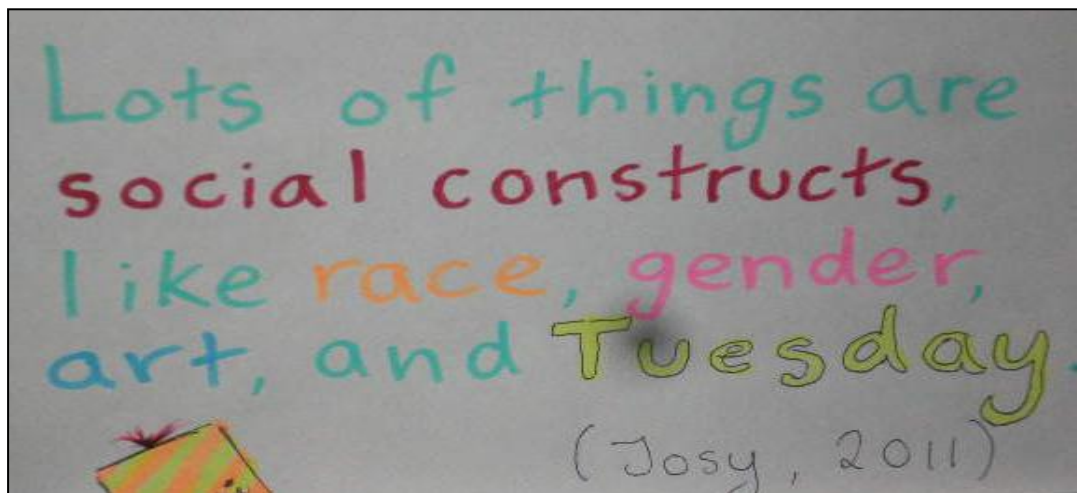 Lots of things are
social constructs,
like race, gender,
art, and Tuesday.
(Josy, 2011)